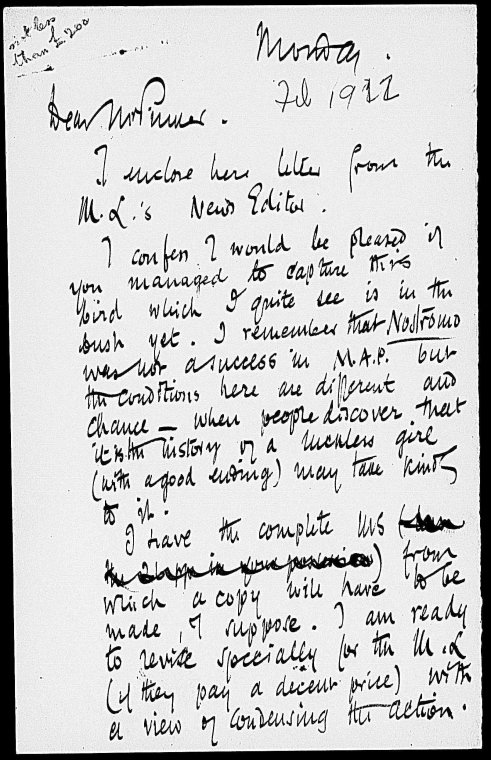 not less
than £200
Monday.
Feb 1922
Dear Mr Pinker.
I enclose here letter from the
M.L.'s News Editor.
I confess I would be pleased if
you managed to capture this
bird which I quite see is in the
bush yet. I remember that Nostromo
was not a success in M.A.P. but
the conditions here are different and
Chance — when people discover that
it is the history of a luckless girl
(with a good ending) may take kindly
to it.
I have the complete MS
from
which a copy will have to be
made, I suppose. I am ready
to revise specially for the M.L
(if they pay a decent price) with
a view of condensing the action.